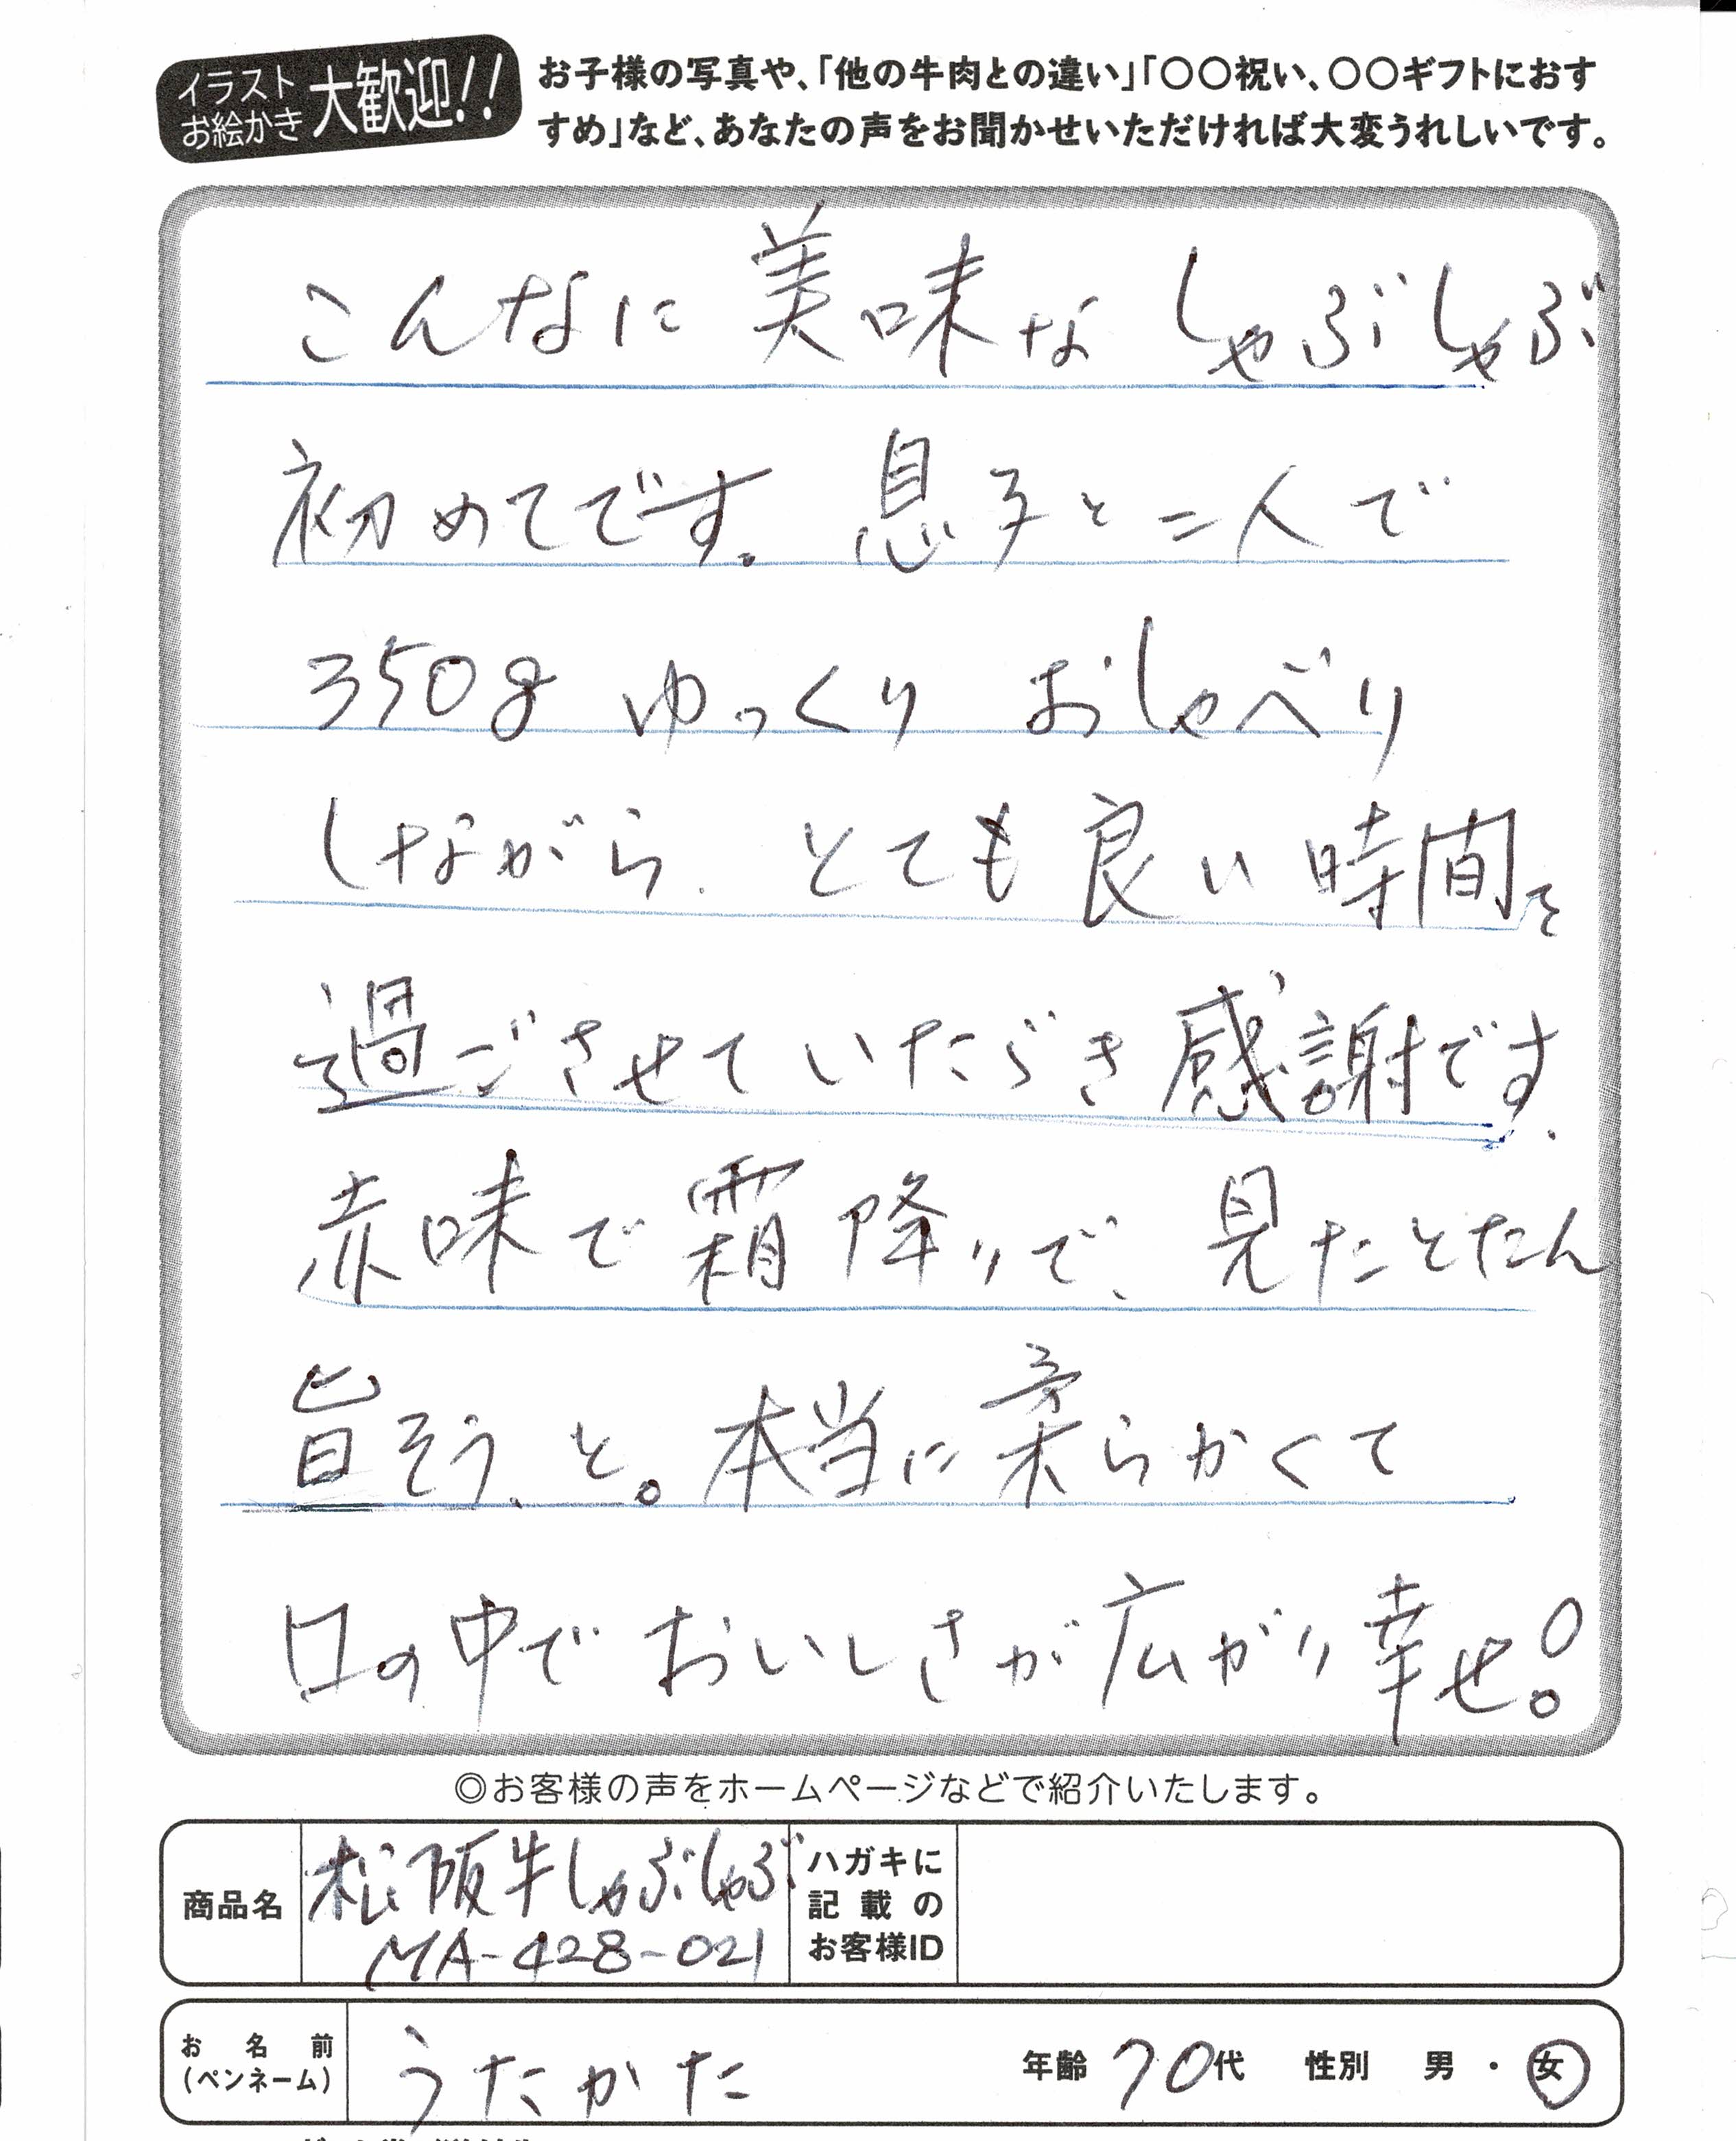 イラスト
お絵かき
大歓迎!!
お子様の写真や、「他の牛肉との違い」「〇〇祝い、〇〇ギフトにおす
すめ」など、あなたの声をお聞かせいただければ大変うれしいです。
こんなに美味なしゃぶしゃぶ
初めてです。息子と二人で
350g ゆっくり おしゃべり
しながら、とても良い時間を
過ごさせていただき感謝です.
赤味で霜降りで、見たとたん
旨そう、と。本当に柔らかくて
口の中でおいしさが広がり幸せ!
◎お客様の声をホームページなどで紹介いたします。
商品名
松阪牛しゃぶしゃぶ
MA-428-021
ハガキに
記載の
お客様ID
お名前
(ペンネーム)
うたかた
年齢 70代 性別 男・女